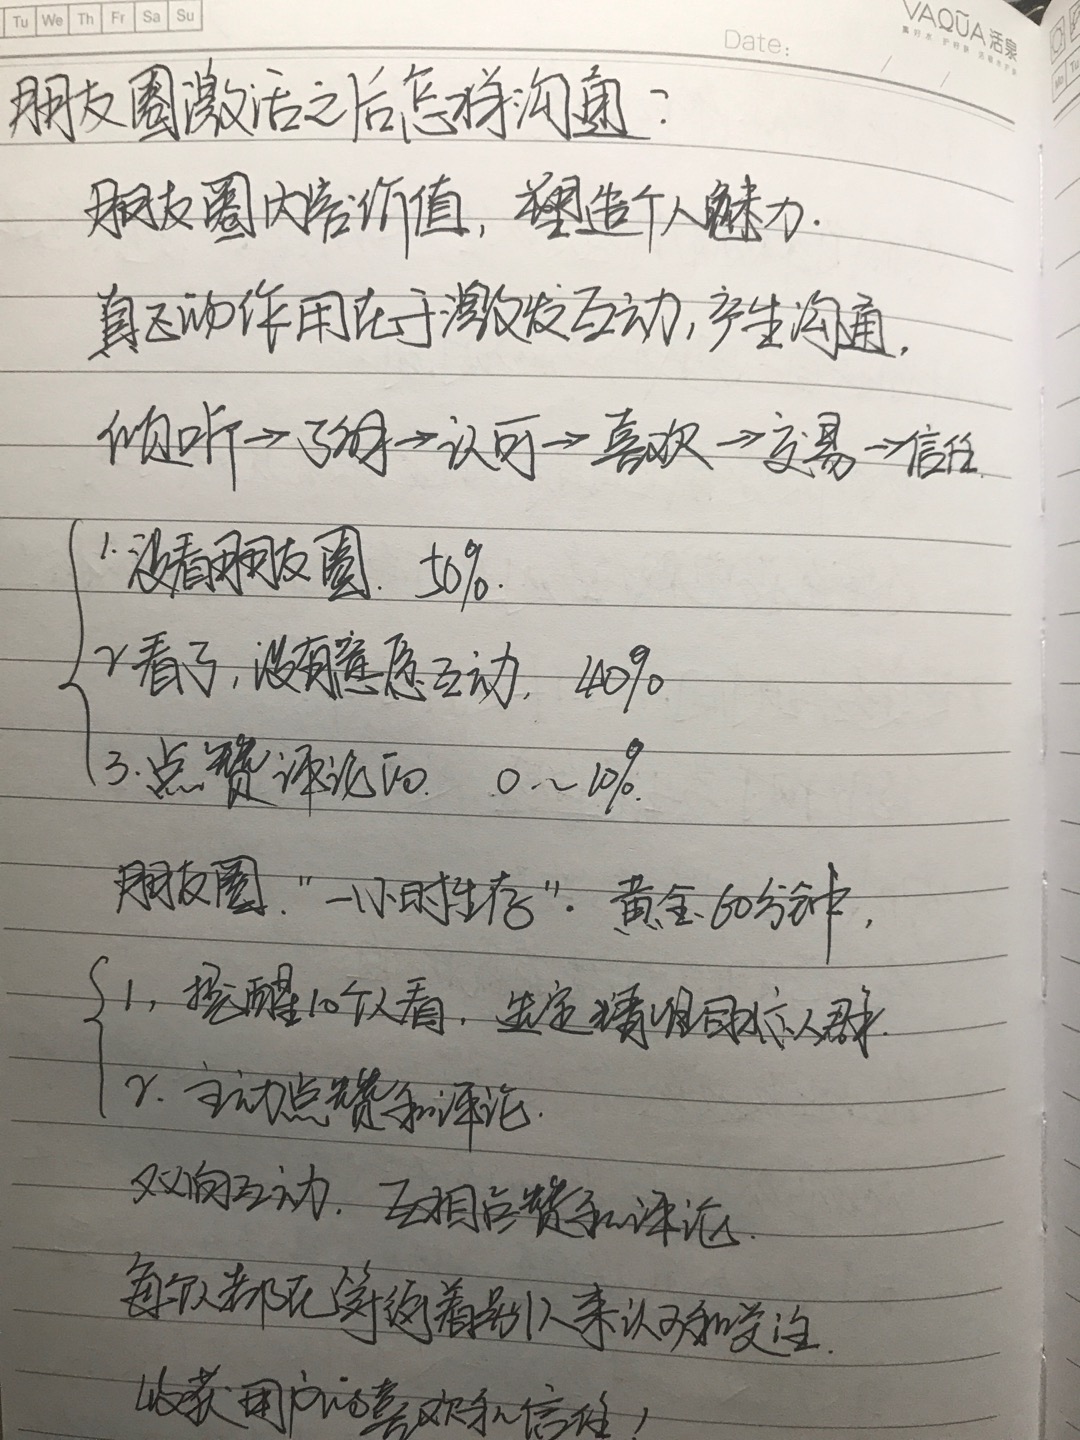 Tu We Th Fr Sa Su
Date:
VAQŪA 活泉
朋友圈激活之后怎样沟通?
朋友圈内容价值,塑造个人魅力.
真正的作用在于激发互动,产生沟通,
倾听→了解→认可→喜欢→交易→信任.
1.没看朋友圈. 50%.
2.看了,没有意愿互动. 40%
3.点赞评论的. 0~10%.
朋友圈."一小时生存".黄金60分钟,
1,提醒10个人看,选定精准目标人群.
2.主动点赞和评论.
双向互动.互相点赞和评论.
每个人都在等待着别人来认可和关注.
收获用户的喜欢和信任!